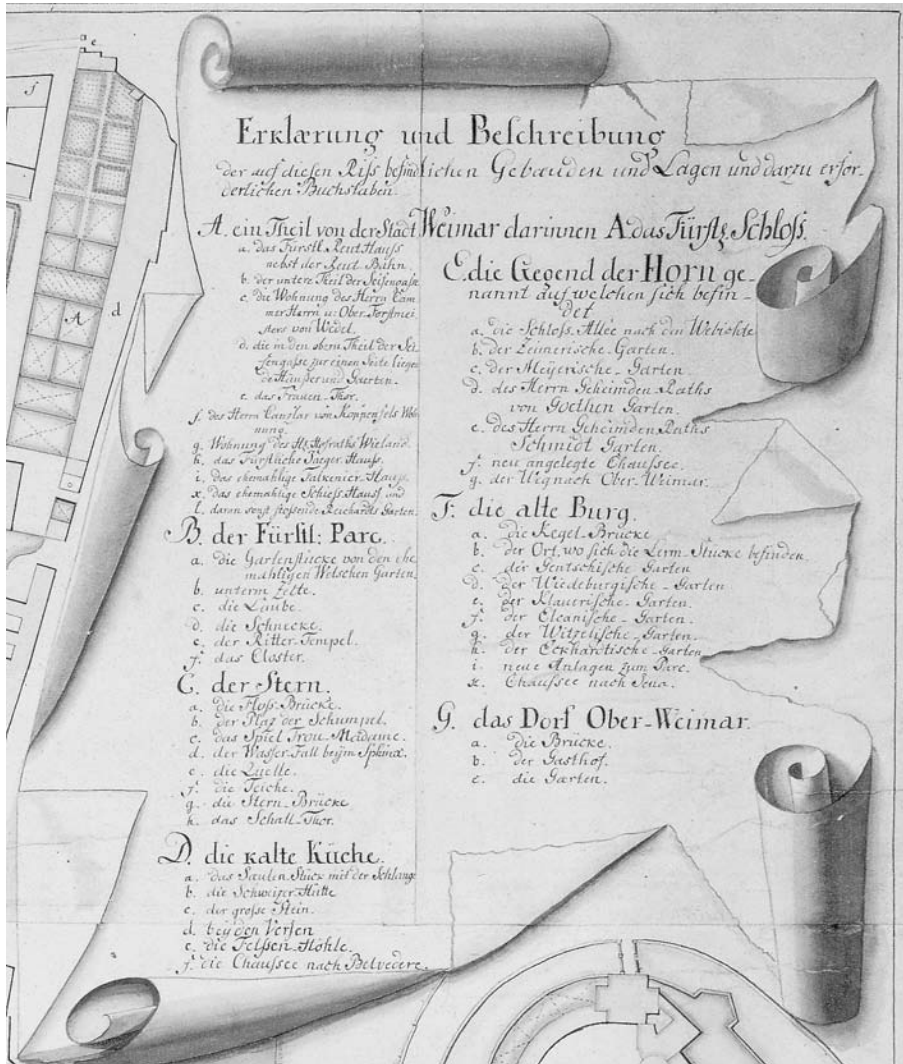 e
f
d
A
Erklærung und Beschreibung
der auf diesen Riſs befindlichen Gebæuden und Lagen und darzu erfor-
derlichen Buchstaben.
A. ein Theil von der Stadt Weimar darinnen A. das Fürstl. Schloſs.
a. das Fürstl. Reut Hauſs
nebst der Reut Bahn.
b. der untere Theil der Seifengaſse
c. die Wohnung des Herrn Cam-
mer Herrn u: Ober-Forstmei-
sters von Wedel.
d. die in den obern Theil der Sei-
fengaſse zur einen Seite liegen-
de Häuſser und Gaerten.
e. das Frauen-Thor.
f. des Herrn Canzlar von Koppenfels Woh-
nung.
g. Wohnung des Hr. Hofraths Wieland.
h. das Fürstliche Jaeger-Hauſs.
i. das ehemahlige Falkenier-Hauſs.
k. das ehemahlige Schieſs-Hauſs und
l. daran sonst stoſsende Reichardts Garten.
B. der Fürstl: Parc.
a. die Gartenstücke von den ehe-
mahligen Welschen Garten.
b. unterm Zelte.
c. die Laube.
d. die Schnecke.
e. der Ritter-Tempel.
f. das Closter.
C. der Stern.
a. die Floſs-Brücke.
b. der Plaz der Schumpel.
c. das Spiel Trou-Madame.
d. der Waſser-Fall beijm Sphinx.
e. die Quelle.
f. die Teiche.
g. die Stern-Brücke
h. das Schall-Thor.
D. die kalte Küche.
a. das Saulen-Stück mit der Schlange
b. die Schweizer-Hütte
c. der groſse Stein.
d. beij den Versen
e. die Felſsen-Höhle.
f. die Chauſsee nach Belvedere.
E. die Gegend der Horn ge-
nannt auf welchen sich befin-
det
a. die Schloſs-Allee nach den Webichte
b. der Zeinerische-Garten.
c. der Meyerische-Garten.
d. des Herrn Geheimden Raths
von Goethen Garten.
e. des Herrn Geheimden Raths
Schmidt Garten.
f. neu angelegte Chauſsee.
g. der Wig nach Ober-Weimar.
F. die alte Burg.
a. die Kegel-Brücke
b. der Ort, wo sich die Lerm-Stücke befinden
c. der Gentschische Garten
d. der Wiedeburgische-Garten
e. der Klauerische-Garten.
f. der Elcanische-Garten.
g. der Witzelische-Garten.
h. der Eckhardtische-Garten
i. neue Anlagen zum Parc.
k. Chauſsee nach Jena.
G. das Dorf Ober-Weimar.
a. die Brücke.
b. der Gasthof.
c. die Gærten.